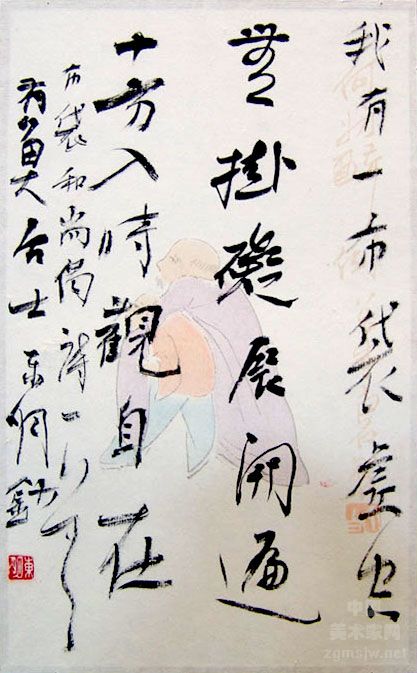 我有一布袋虛空
無掛礙展開遍
十方入時觀自在
布袋和尚偈詩一
居士 東明
中国
美术家网
zgmsjw.net